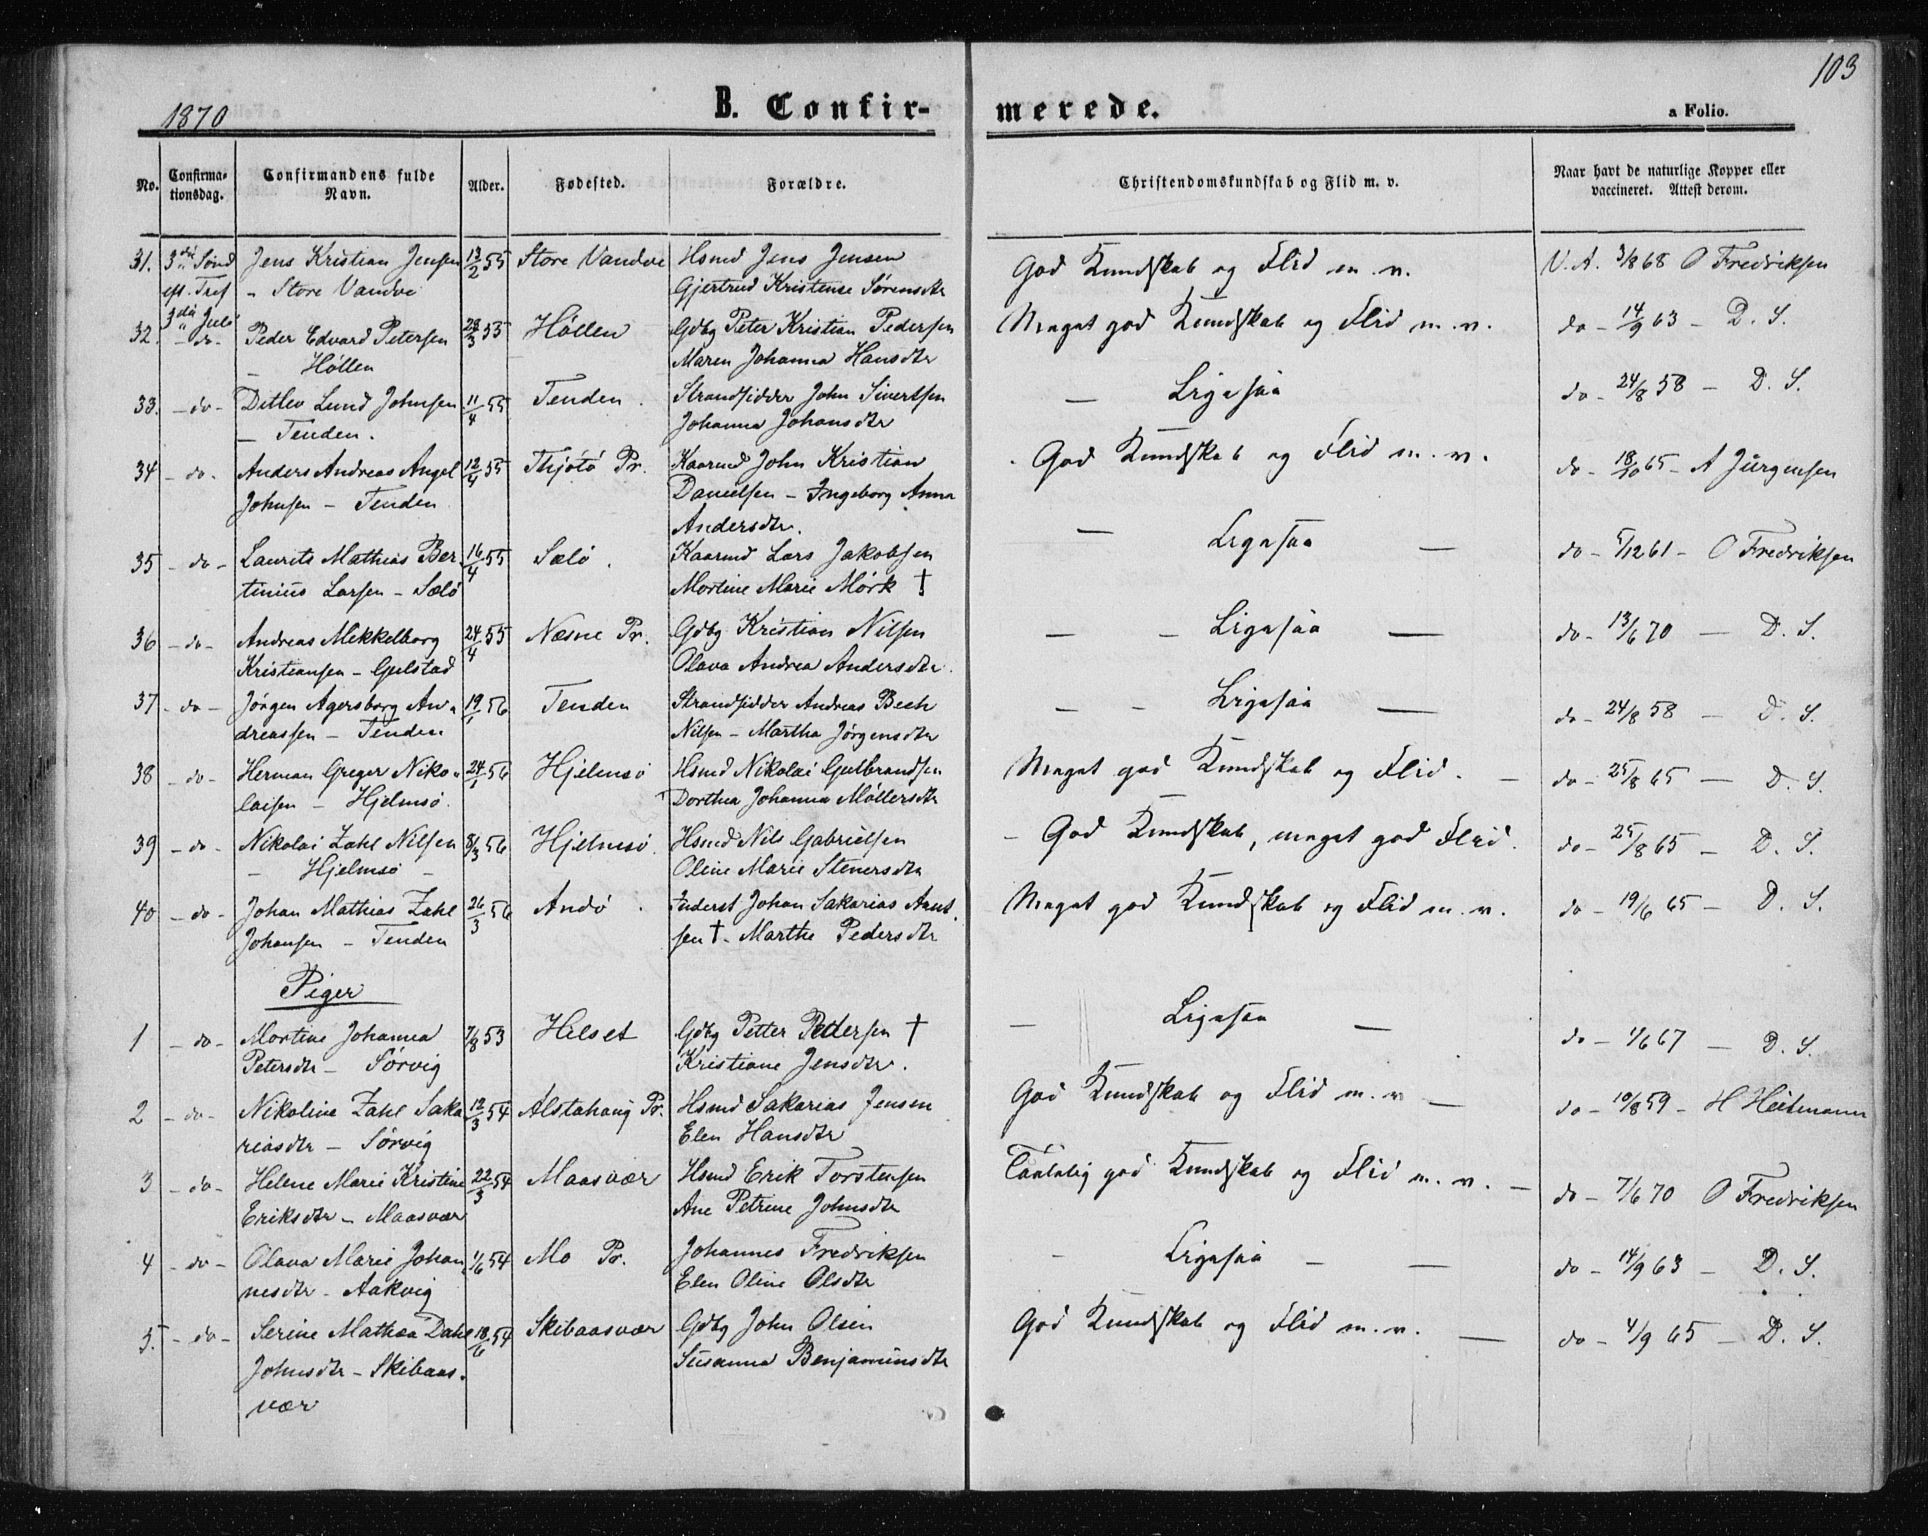 103
1870
B. Confirmerede.
a Folio.
No. Confirmationsdag. Confirmandens fulde Navn. Alder. Fødested. Forældre. Christendomskundskab og Flid m. v. Naar havt de naturlige Kopper eller vaccineret. Attest derom.
31. 3die Sönd Jens Kristian Jensen 13/2 55 Store Vandve Hsmd Jens Jensen God Kundskab og Flid m. v. V. A. 3/8 68 O Fredriksen
eft. Tref - Store Vandve Gjertrud Kristense Sørensdtr
3die Juli
32. - do - Peder Edvard Petersen 23/3 55 Höllen Gdbg Peter Kristian Pedersen Meget god Kundskab og Flid m. v. do - 14/9 63 - D. S.
- Höllen Maren Johanna Hansdtr
33. - do - Ditlev Lund Johnsen 11/4 55 Tenden. Strandsidder John Sivertsen — Ligesaa do - 24/8 58 - D. S.
- Tenden. Johanna Johansdtr
34 - do - Anders Andreas Angel 12/4 55 Thjötö Pr. Kaarmd John Kristian God Kundskab og Flid m. v. do - 18/10 65 - A Jürgensen
Johnsen - Tenden Danielsen - Ingeborg Anna
Andersdtr.
35 - do - Laurits Mathias Ber- 16/4 55 Sælö. Kaarmd Lars Jakobsen — Ligesaa — do - 5/12 61 - O Fredriksen
tinius Larsen - Sælö Mortine Marie Mörk †
36 - do - Andreas Mekkelborg 24/4 55 Næsne Pr. Gdbg Kristian Nilsen — - Ligesaa — do - 13/6 70 - D. S.
Kristiansen - Gulstad Olava Andrea Andersdtr.
37 - do - Jörgen Agersborg An- 19/1 56 Tenden Strandsidder Andreas Bech - - Ligesaa — do - 24/8 58 - D. S.
dreassen - Tenden Nilsen - Martha Jörgensdtr
38 - do - Herman Greger Niko- 24/1 56 Hjelmsö Hsmd Nikolai Gulbrandsen Meget god Kundskab og Flid. - do - 25/8 65 - D. S.
laisen - Hjelmsö. Dorthea Johanna Möllersdtr
39 - do - Nikolai Zahl Nilsen 8/3 56 Hjelmsö. Hsmd Nils Gabrielsen - God Kundskab, meget god Flid. do - 25/8 65 - D. S.
- Hjelmsö - Oline Marie Stenersdtr
40 - do - Johan Mathias Zahl 26/3 56 Andö. Inderst Johan Sakarias Arnt- Meget god Kundskab og Flid m. v. do - 19/6 65 - D. S.
Johansen - Tenden sen † - Marthe Pedersdtr
Piger
1 - do - Mortine Johanna 7/8 53 Helset Gdbg Petter Pettersen † — Ligesaa — do - 1/6 67 - D. S.
Petersdtr - Sörvig Kristiane Jensdtr.
2 - do - Nikoline Zahl Saka- 12/3 54 Alstahaug Pr. Hsmd Sakarias Jensen God Kundskab og Flid m. v — do - 10/8 59 - H Heitmann
riasdtr - Sörvig Elen Hansdtr
3 - do - Helene Marie Kristine 22/3 54 Maasvær Hsmd Erik Torstensen Taalelig god Kundskab og Flid m. v. - do - 7/6 70 O Fredriksen
Eriksdtr - Maasvær Ane Petrine Johnsdtr
4 - do - Olava Marie Johan- 1/6 54 Mo Pr. Johannes Fredriksen - Ligesaa - — do - 14/9 63 - D. S.
nesdtr - Aakvig Elen Oline Olsdtr
5. - do - Serine Mathea Dahl 18/6 54 Skibaasvær Gdbg John Olsen God Kundskab og Flid m. v. — do - 4/9 65 - D. S.
Johnsdtr - Skibaas- Susanna Benjaminsdtr
vær